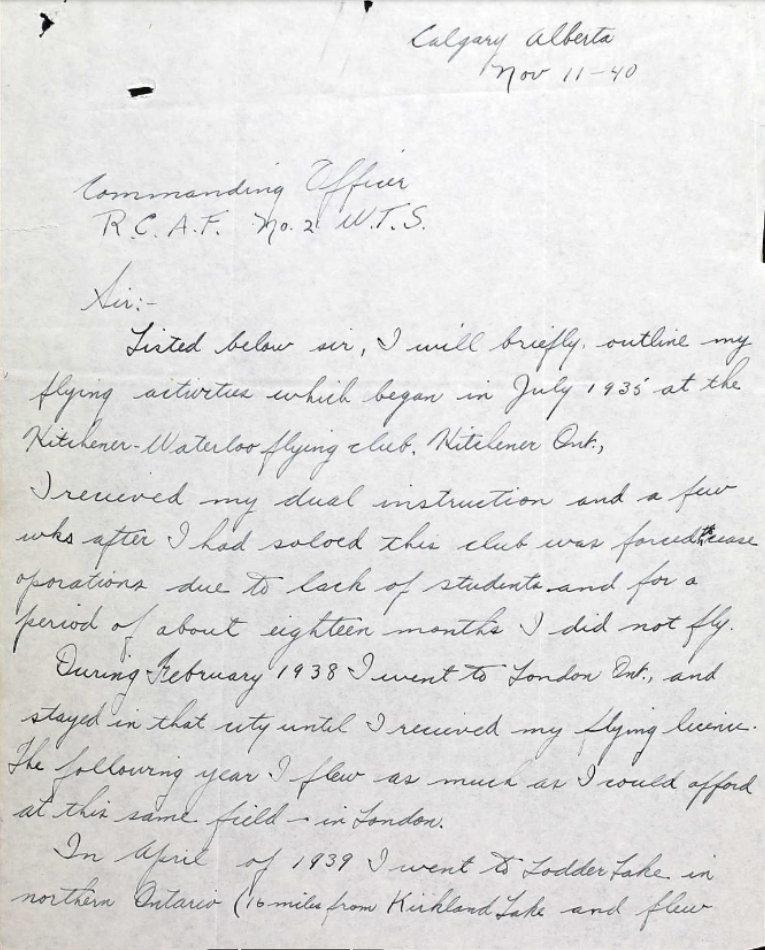 Calgary Alberta
Nov 11-40
Commanding Officer
R.C.A.F. No. 2 W.T.S.
Sir:-
Listed below sir, I will briefly, outline my
flying activities which began in July 1935 at the
Kitchener-Waterloo flying club, Kitchener Ont.,
I recieved my dual instruction and a few
wks after I had soloed this club was forced to cease
oporations due to lack of students and for a
period of about eighteen months I did not fly.
During February 1938 I went to London Ont., and
stayed in that city until I recieved my flying licence.
The following year I flew as much as I could afford
at this same field - in London.
In April of 1939 I went to Lake in
northern Ontario (16 miles from Kirkland Lake and flew